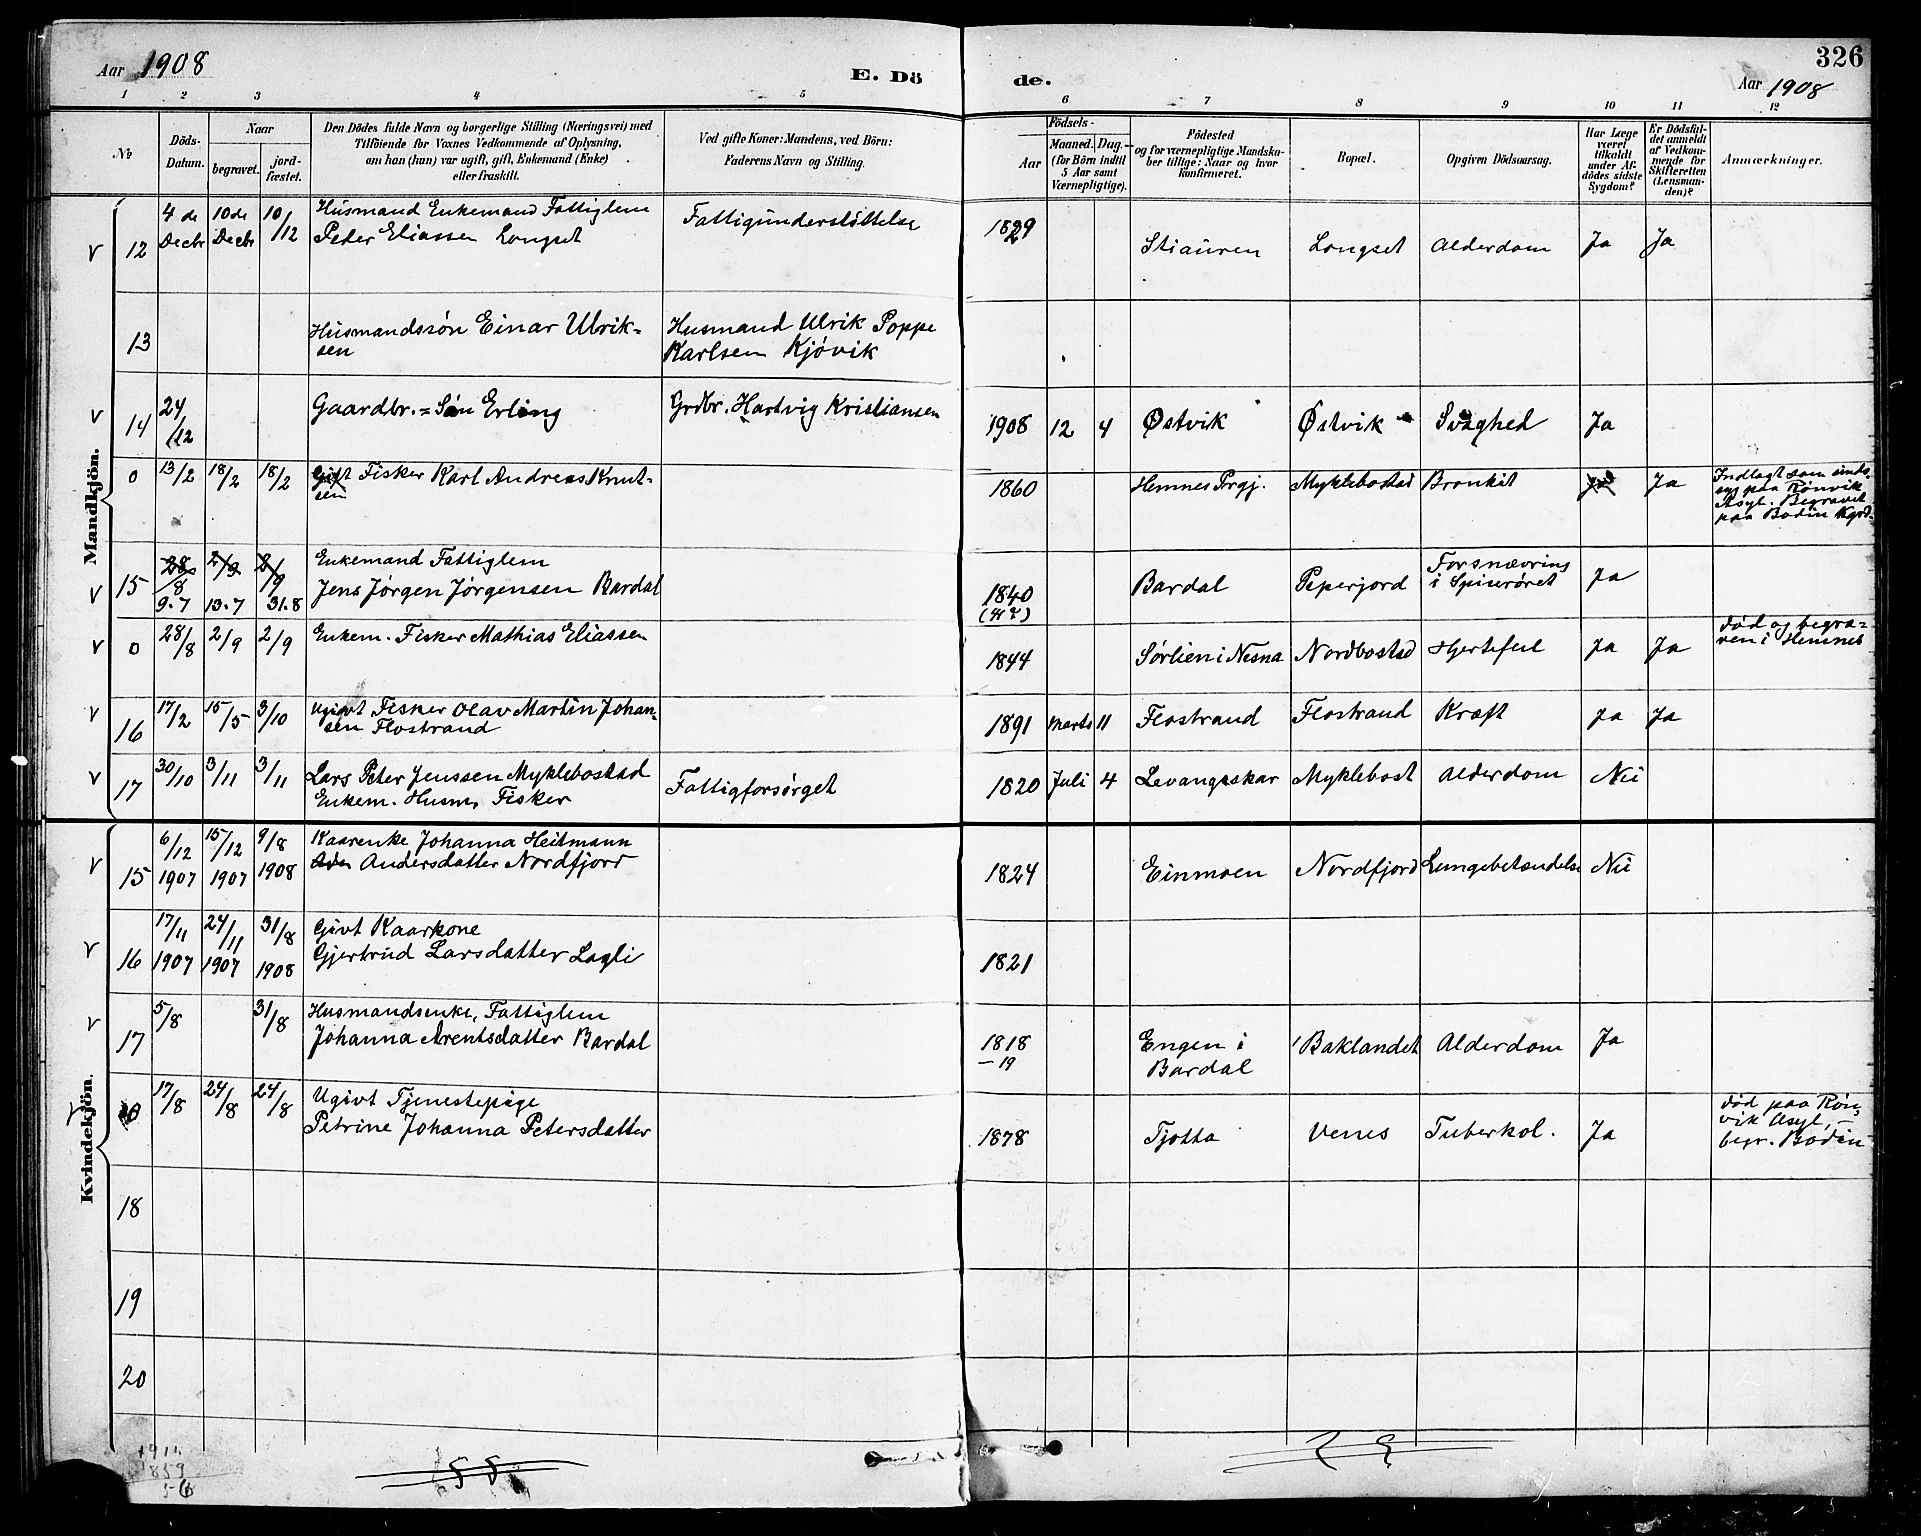 326
Aar 1908
E. Dö de.
Aar 1908
1 2 3 4 5 6 7 8 9 10 11 12
No
Döds-Datum.
Naar
begravet.
jord-fæstet.
Den Dödes fulde Navn og borgerlige Stilling (Næringsvei) med
Tilföiende for Voxnes Vedkommende af Oplysning,
om han (hun) var ugift, gift, Enkemand (Enke)
eller fraskilt.
Ved gifte Koner: Mandens, ved Börn:
Faderens Navn og Stilling.
Födsels-
Aar
Maaned. Dag.
(for Börn indtil
5 Aar samt
Værnepligtige).
Födested
og for værnepligtige Mandska-
ber tillige: Naar og hvor
konfirmeret.
Bopæl.
Opgiven Dödsaarsag.
Har Læge
været
tilkaldt
under Af-
dödes sidste
Sygdom?
Er Dödsfal-
det anmeldt
af Vedkom-
mende for
Skifteretten
(Lensman-
den)?
Anmærkninger.
Mandkjön.
12 4 de Decbr 10 de Decbr 10/12 Husmand Enkemand Fattiglem
Peter Eliassen Longset Fattigunderstöttelse 1829 Stiauren Longset Alderdom Ja Ja
13 Husmandssön Einar Ulrik-
sen Husmand Ulrik Poppe
Karlsen Kjövik
14 24/12 Gaardbr.=Sön Erling Grdbr. Hartvig Kristiansen 1908 12 4 Østvik Østvik Svaghed Ja
0 13/2 18/2 18/2 Gift Fisker Karl Andreas Knut-
sen 1860 Hemnes Prgj. Myklebostad Bronkit Ja Ja Indlagt som sinds-
syg paa Rønvik
Asyl. Begravet
paa Bodin Kgrd.
15 28/8 2/9 2/9 Enkemand Fattiglem
9.7 13.7 31.8 Jens Jørgen Jørgensen Bardal 1840 Bardal Peperjord Forsnævring
i Spiserøret Ja
0 28/8 2/9 2/9 Enkem. Fisker Mathias Eliassen 1844 Sørlien i Nesna Nordbostad Hjertefeil Ja Ja død og begra-
ven i Hemnes
16 17/2 15/5 3/10 Ugivt Fisker Olav Martin Johan-
sen Flostrand 1891 Marts 11 Flostrand Flostrand Kræft Ja Ja
17 30/10 3/11 3/11 Lars Peter Jenssen Myklebostad
Enkem. Husm. Fisker Fattigforsørget 1820 Juli 4 Levangsskar Myklebost Alderdom Nei
Kvindekjön.
15 6/12 1907 15/12 1907 9/8 1908 Kaarenke Johanna Heitmann
Andersdatter Nordfjord 1824 Einmoen Nordfjord Lungebetændelse Nei
16 17/11 1907 24/11 1907 31/8 1908 Givt Kaarkone
Gjertrud Larsdatter Lagli 1821
17 5/8 31/8 Husmandsenke, Fattiglem
Johanna Arentsdatter Bardal 1818
-19 Engen i
Bardal Baklandet Alderdom Ja
0 17/8 24/8 24/8 Ugivt Tjenestepige
Petrine Johanna Petersdatter 1878 Tjotta Venes Tuberkol. Ja død paa Røn-
vik Asyl,
begr. Bodin
18
19
20
1859